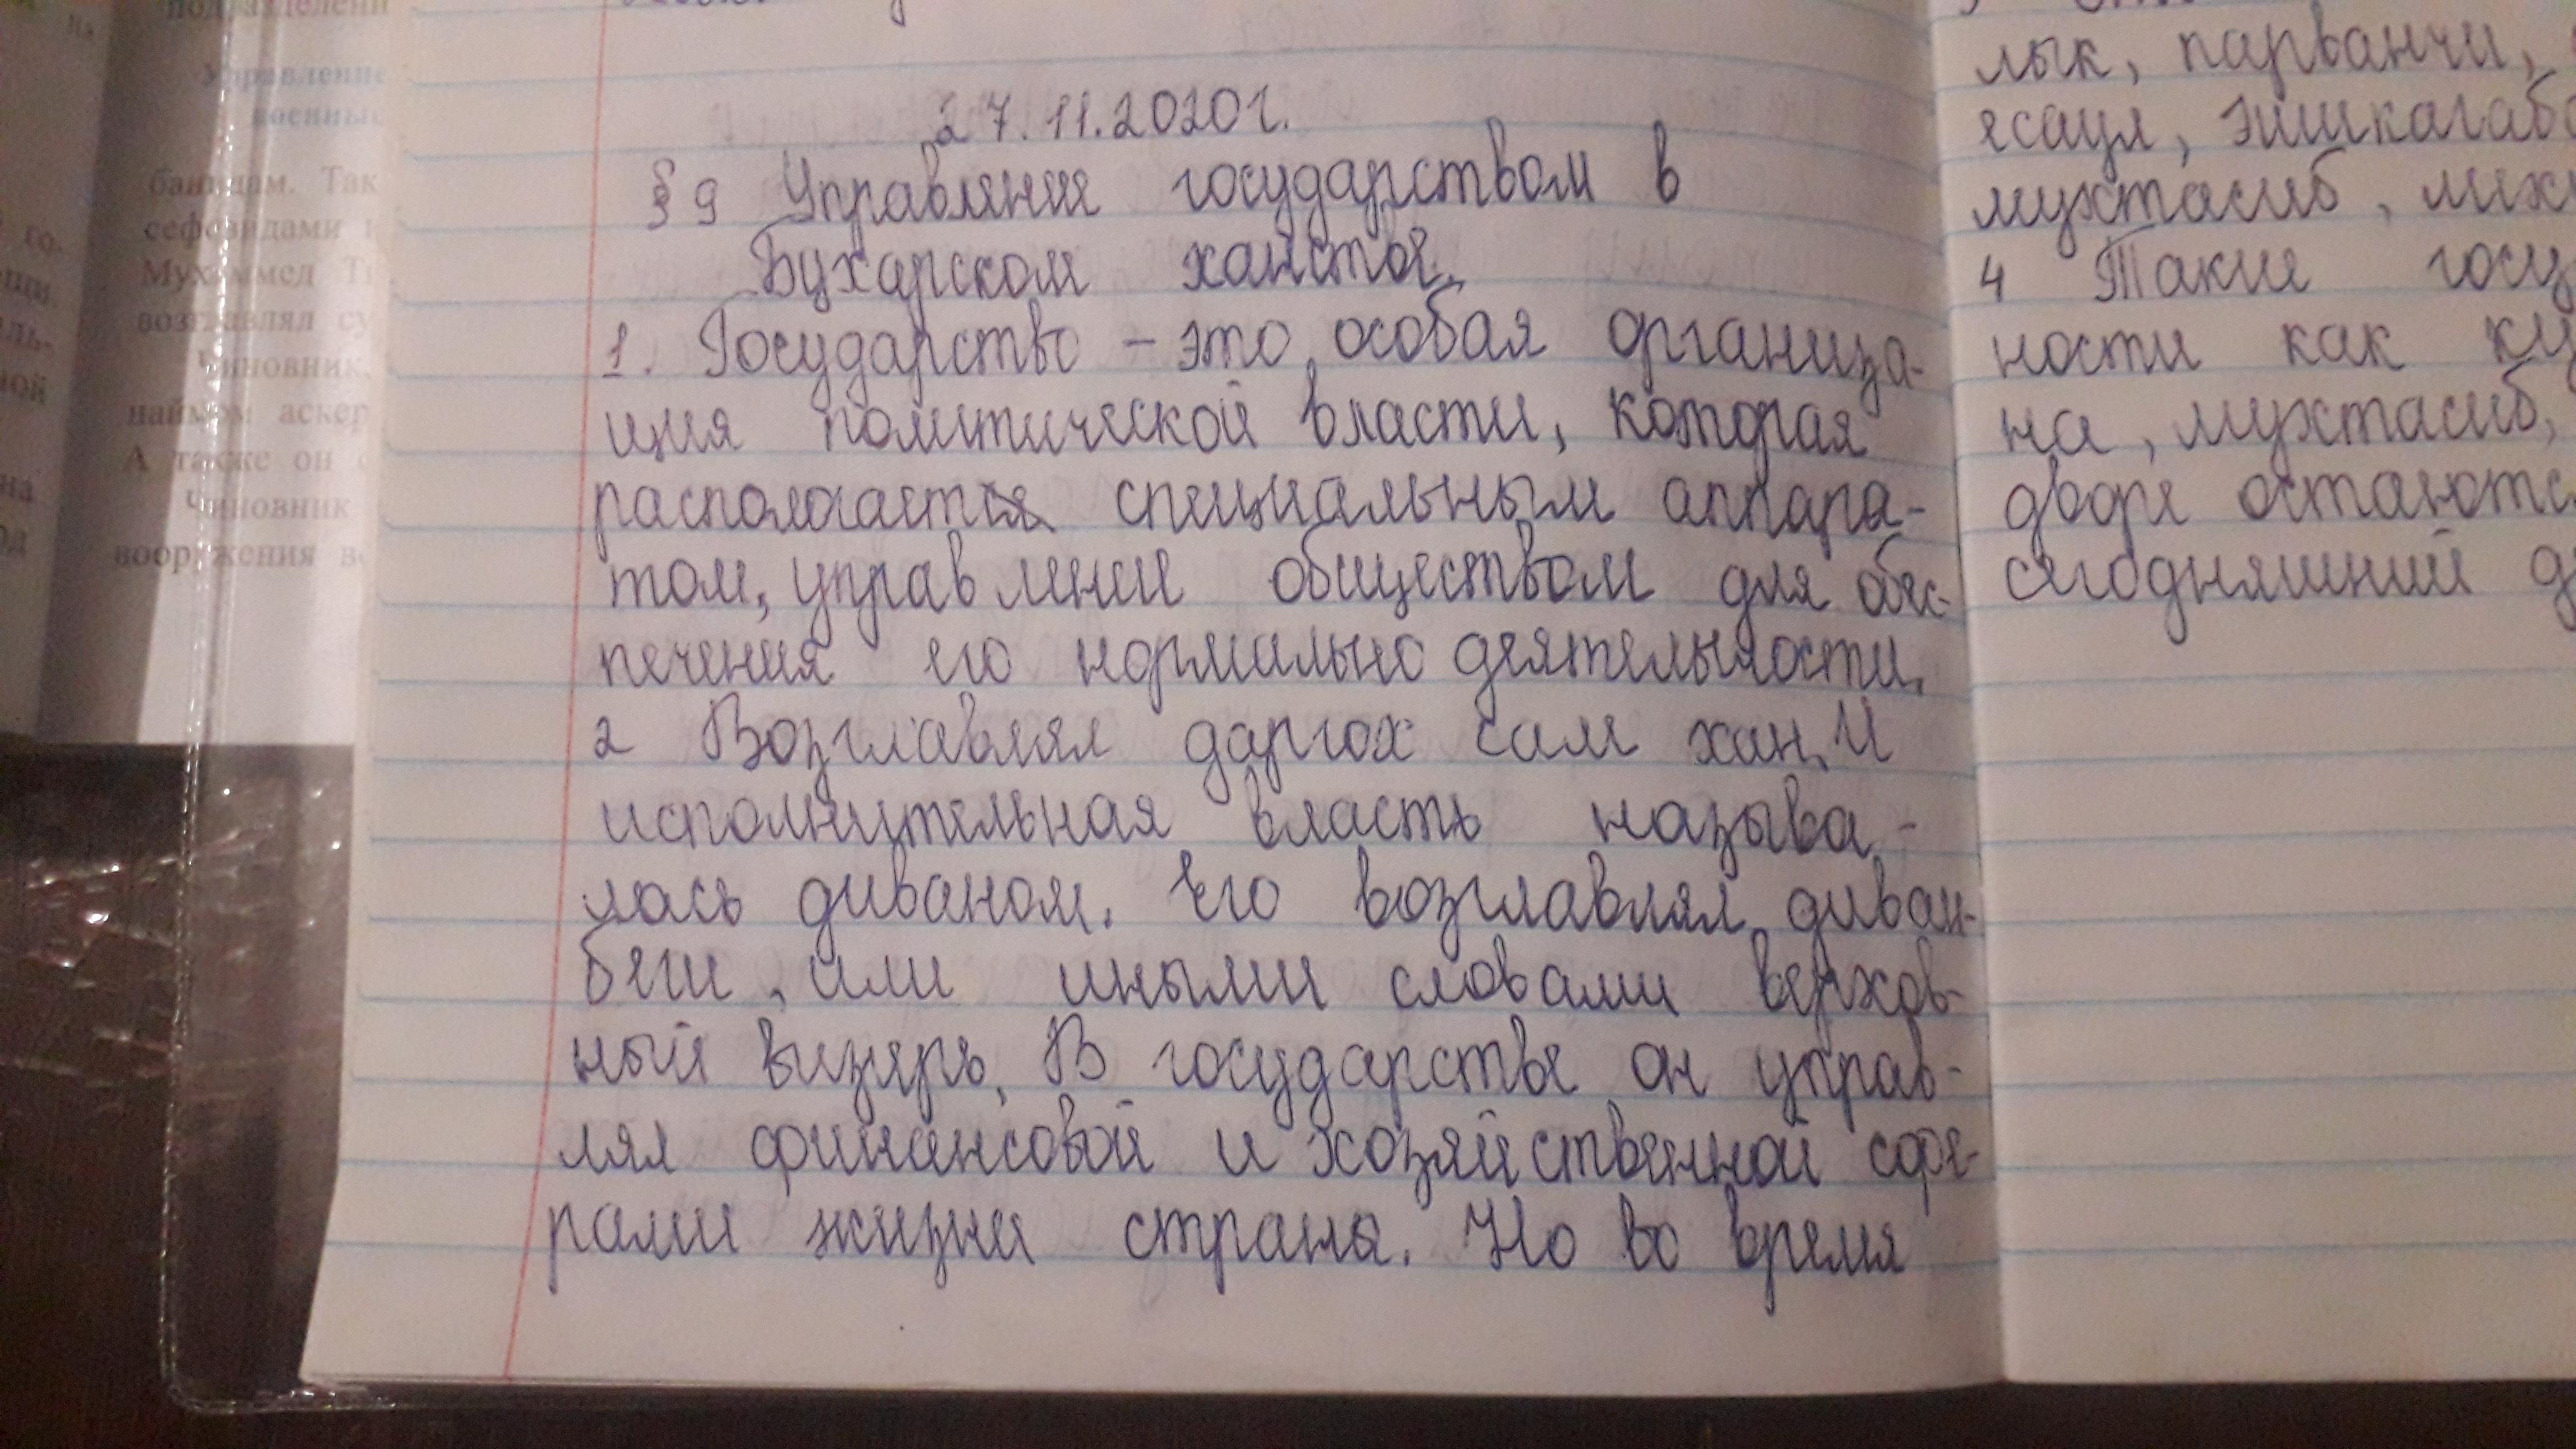 подразделени
Управление
военные
банидам. Так
сефовидами
Мухаммед
возглавлял су
Чиновник
наймом аскер
А также он
Чиновник
вооружения
го-
ещи.
ной
на
27.11.2020г.
§ 9 Управление государством в
Бухарском ханстве.
1. Государство – это особая организа-
ция политической власти, которая
распологается специальным аппара-
том, управлении обществом для обес-
печения его нормально деятельности.
2 Возглавлял даргох сам хан. И
исполнительная власть называ-
лась диваном. Его возглавлял диван-
беги, или иными словами верхов-
ный визерь. В государстве он управ-
лял финансовой и хозяйственной сфе-
рами жизни страны. Но во время
лык, парванчи,
есаул, эшикагаб
мухтасиб,
4 Такие госу
ности как
на, мухтасиб,
дворе остаютс
сегодняшний д